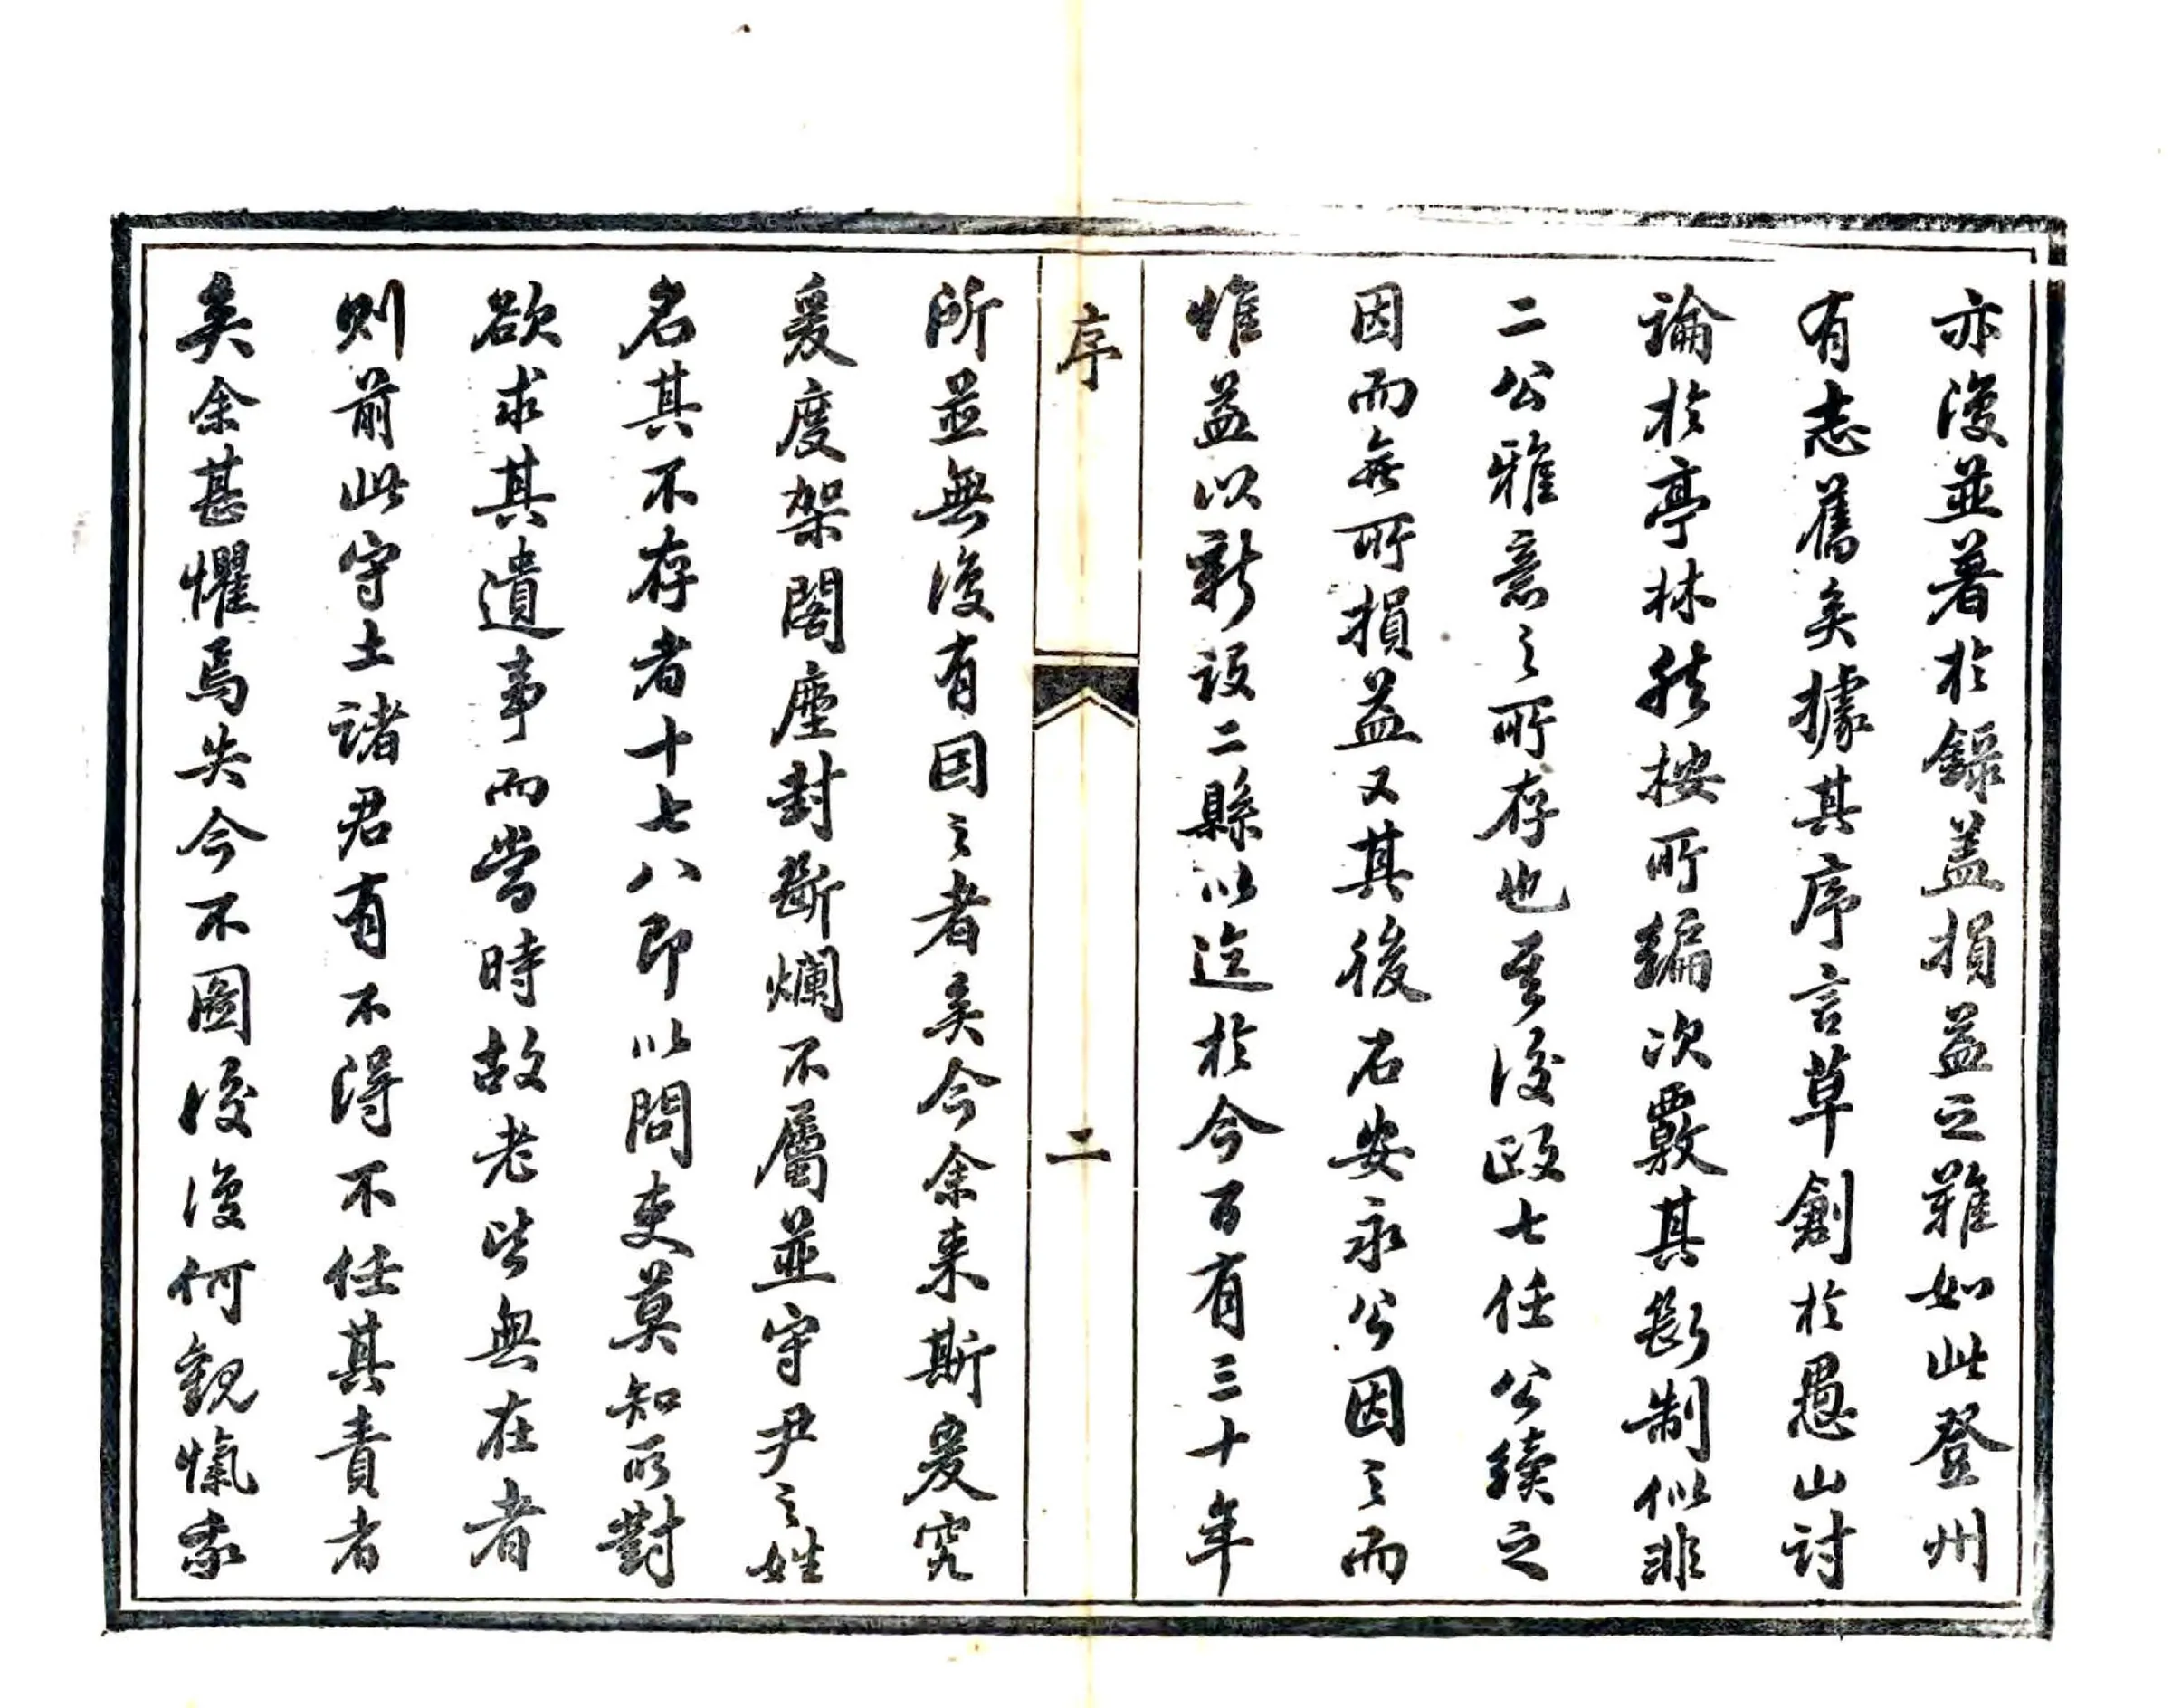 亦復並著於錄蓋損益之難如此登州
有志舊矣據其序言草創於愚山討
論於亭林然按所編次覈其裁制似非
二公雅意之所存也至後政七任公續之
因而無所損益又其後石安永公因之而
惟益以新設二縣以迄於今百有三十年
序
二
所並無復有因之者矣今余來斯爰究
爰度架閣塵封斷爛不屬並守尹之姓
名其不存者十七八即以問吏莫知所對
欲求其遺事而當時故老皆無在者
則前此守土諸君有不得不任其責者
矣余甚懼焉失今不圖後復何觀愾我